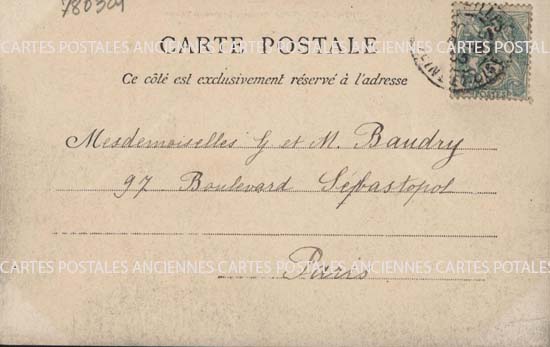 780324
CARTE POSTALE
Ce côté est exclusivement réservé à l'adresse
Mesdemoiselles G et M. Baudry
97 Boulevard Sébastopol
CARTES POSTALES ANCIENNES CARTES POSTALES ANCIENNES CARTES POSTALES
Paris
CARTES POSTALES ANCIENNES CARTES POSTALES ANCIENNES CARTES POTALES